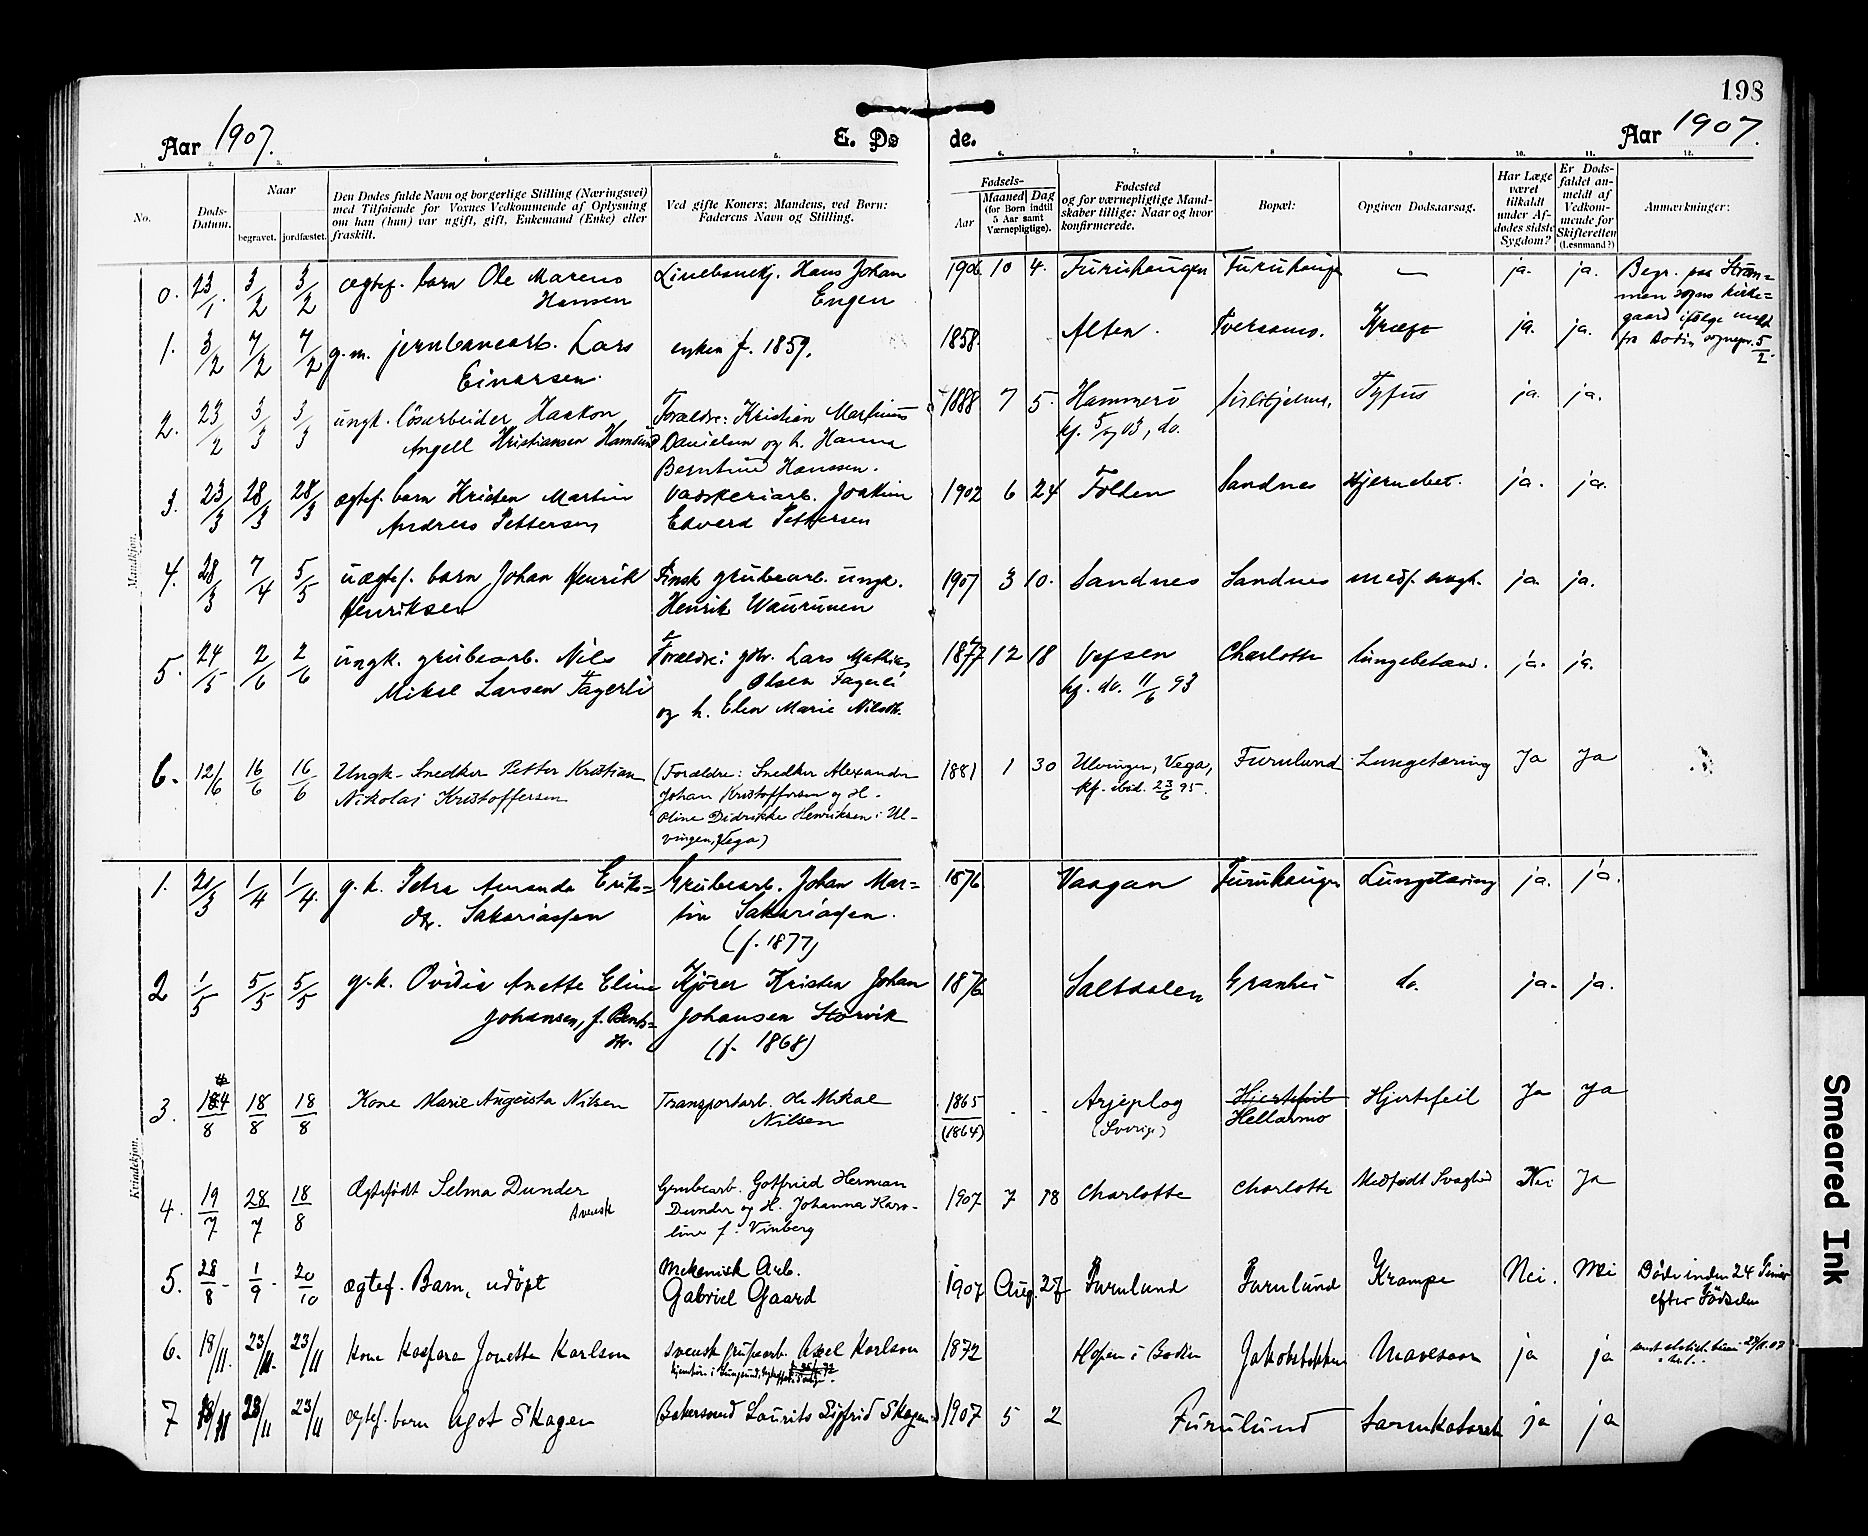 198
Aar 1907.
E. Dø de.
Aar 1907.
1. 2. 3. 4. 5. 6. 7. 8 9 10. 11. 12.
No.
Døds-
Datum.
Naar
begravet. jordfæstet.
Den Dødes fulde Navn og borgerlige Stilling (Næringsvei)
med Tilføiende for Voxnes Vedkommende af Oplysning
om han (hun) var ugift, gift, Enkemand (Enke) eller
fraskilt.
Ved gifte Koners: Mandens, ved Børn:
Faderens Navn og Stilling.
Fødsels-
Aar
Maaned Dag
(for Børn indtil
5 Aar samt
Værnepligtige).
Fødested
og for værnepligtige Mand-
skaber tillige: Naar og hvor
konfirmerede.
Bopæl:
Opgiven Dødsaarsag.
Har Læge
været
tilkaldt
under Af-
dødes sidste
Sygdom?
Er Døds-
faldet an-
meldt af
Vedkom-
mende for
Skifteretten
(Lensmand?)
Anmærkninger:
Mandkjøn.
0. 23/1. 3/2 3/2 ægtef. barn Ole Marens Linebanekj. Hans Johan 1906 10 4. Furuhaugen Furuhaugen — ja. ja. Begr. paa Strøm-
Hansen Engen men sogns kirke-
gaard ifølge meld
fra Bodin sognepr. 5/2.
1. 3/2 7/2 7/2 g.m. jernbanearb. Lars enken f. 1859. 1858. Alten. Tversaanes. Kræft ja. ja.
Einarsen.
2. 23/2 3/3 3/3 ungk. løsarbeider Haakon Forældre: Kristian Martinus 1888 7 5. Hammerø Sulitjelma. Tyfus ja. ja.
Angell Kristiansen Hamsund Danielsen og h. Hanna kf. 5/7 03, do.
Berntine Hanssen.
3. 23/3 28/3 28/3 ægtef. barn Kristen Martin Vaskeriarb. Joakim 1902 6 24 Folden Sandnes Hjernebet. ja. ja.
Andreas Pettersen Edvard Pettersen
4. 28/3 7/4 5/5 uægtef. barn Johan Henrik Finsk grubearb. ungk. 1907 3 10. Sandnes Sandnes medf. svagh. ja. ja.
Henriksen Henrik Waurunen
5. 24/5 2/6 2/6 ungk. grubearb. Nils Forældre: gbr. Lars Mathias 1877 12 18 Vefsen Charlotte lungebetænd. ja. ja.
Mikal Larsen Fagerli Olsen Fagerli kf. do. 11/6 93
og h. Elen Marie Nilsdtr.
6. 12/6 16/6 16/6 Ungk. Snedker Petter Kristian (Forældre: Snedker Alexander 1881 1 30 Ulvingen, Vega, Furulund Lungetæring Ja Ja
Nikolai Kristoffersen Johan Kristoffersen og H. kf. ibid. 23/6 95.
Oline Didrikke Henriksen i Ul-
vingen, Vega)
Kvindekjøn.
1. 20/3 1/4 1/4. g.k. Petra Amanda Eriks- Grubearb. Johan Mar- 1876 Vaagan Furuhaugen Lungetæring ja. ja.
dtr. Sakariassen tin Sakariassen.
(f. 1877)
2 1/5 5/5 5/5 g.k. Ovidia Anette Eline Kjører Kristen Johan 1876 Saltdalen Granhei do. ja. ja.
Johansen, f. Bents- Johansen Storvik
dtr. (f. 1868)
3. 14/8 18/8 18/8 Kone Marie Augusta Nilsen Transportarb. Ole Mikal 1865 - - Arjeplog Hjertefeil Hjertefeil Ja Ja
Nilsen (1864) (Sverige) Hellarmo
4. 19/7 28/7 18/8 Ægtefødt Selma Dunder Grubearb. Gotfried Herman 1907 7 18 Charlotte Charlotte Medfødt Svaghed Nei Ja
svensk Dunder og H. Johanna Karo-
line f. Vinberg
5. 28/8 - 1/9 - 20/10 ægtef. Barn, udöpt Mekanisk Arb. 1907 Aug. 27 Furulund Furulund Krampe Nei. Nei Døde inden 24 Timer
Gabriel Gaard efter Fødselen
6. 18/11. 23/11. 23/11 Kone Kaspara Jonette Karlsen svensk grubearb. Axel Karlson 1872 Hopen i Bodin Jakobsbakken Mavesaar ja ja
7 18/11 23/11 23/11 ægtef. barn Agot Skagen Bakersvend Laurits Sigfrid Skagen 1907 5 2 Furulund ja ja
Smeared Ink